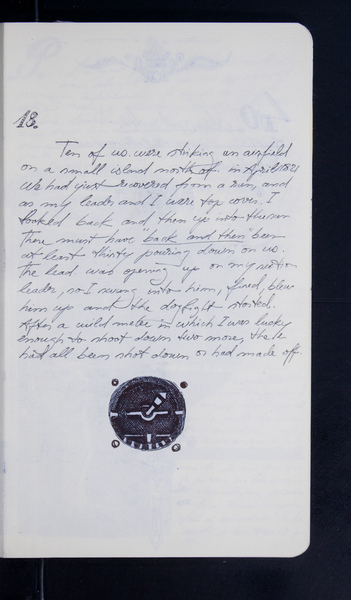 18.
Ten of us were striking an airfield
on a small island north of in April
We had just recovered from a run, and
as my leader and I were "top cover" I
looked back and then up into the sun
There must have "back and then" been
at least thirty pouring down on us.
The lead was opening up on my section
leader, so I swung into him, fired, blew
him up and the dogfight started.
After a wild melee in which I was lucky
enough to shoot down two more, the
had all been shot down or had made off.